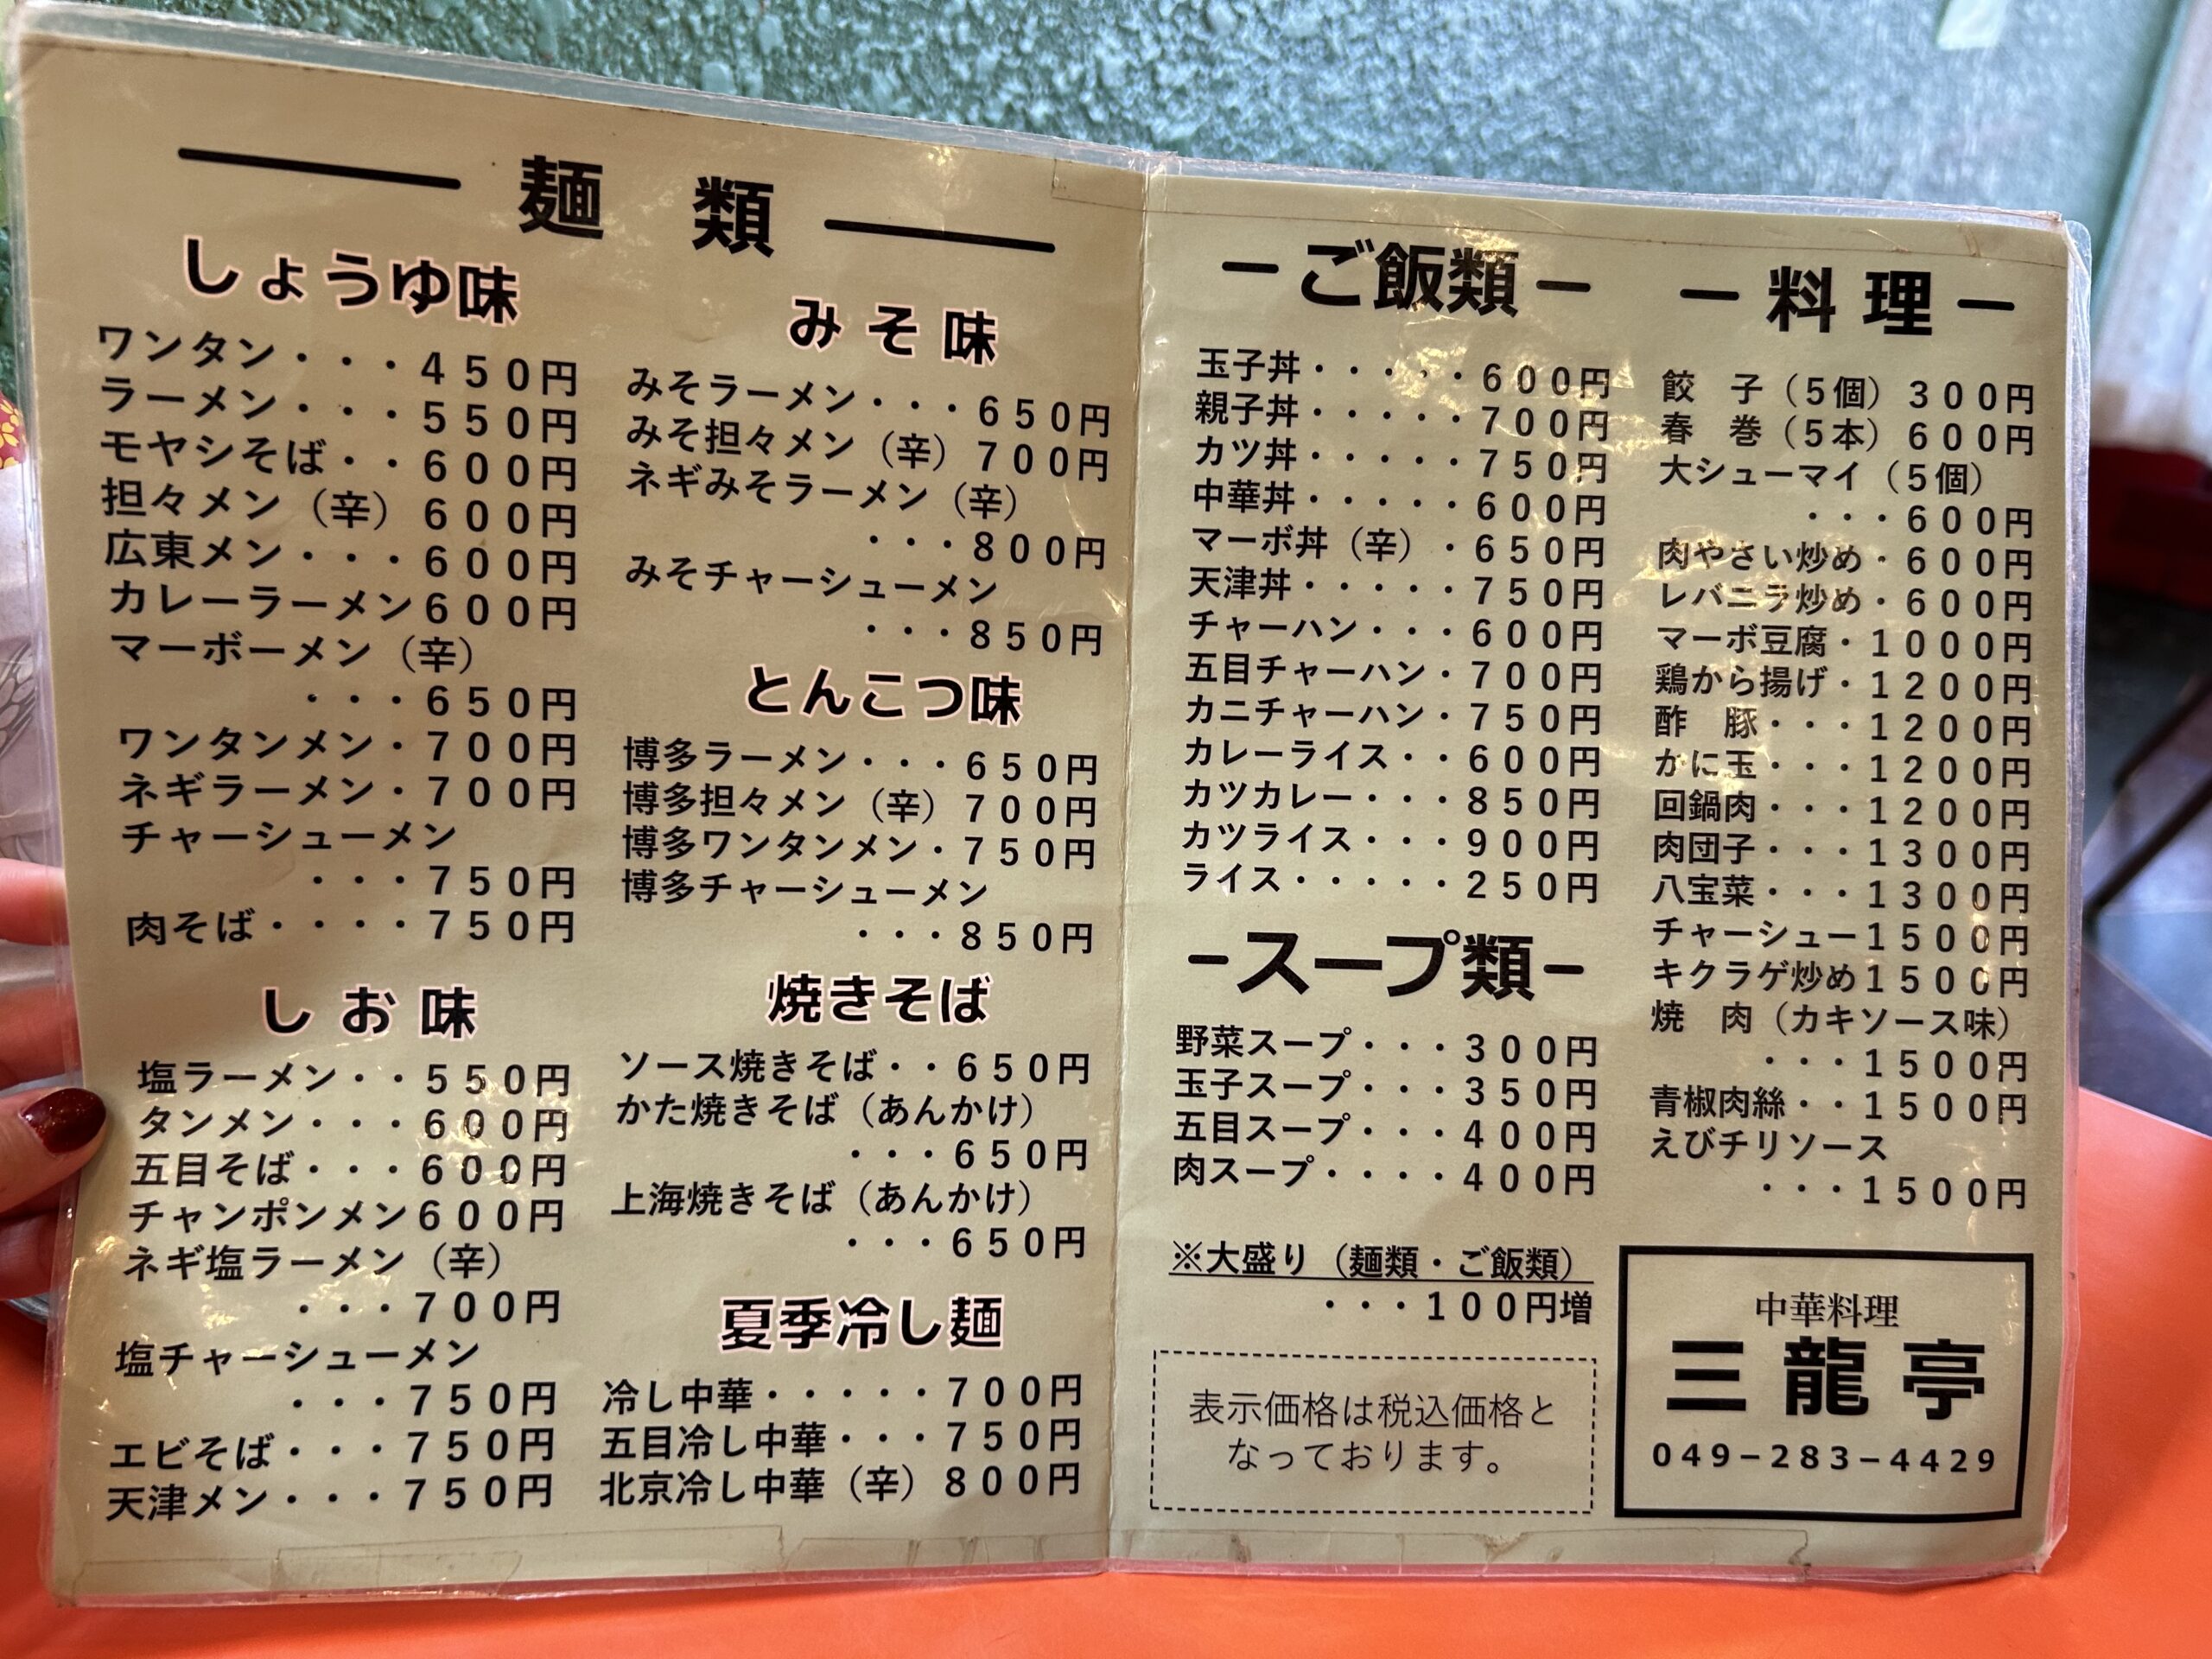 麺 類
しょうゆ味
ワンタン・・・450円
ラーメン・・・550円
モヤシそば・・600円
担々メン（辛）600円
広東メン・・・600円
カレーラーメン600円
マーボーメン（辛）
・・・650円
ワンタンメン・700円
ネギラーメン・700円
チャーシューメン
・・・750円
肉そば・・・・750円
しお味
塩ラーメン・・550円
タンメン・・・600円
五目そば・・・600円
チャンポンメン600円
ネギ塩ラーメン（辛）
・・・700円
塩チャーシューメン
・・・750円
エビそば・・・750円
天津メン・・・750円
みそ味
みそラーメン・・・650円
みそ担々メン（辛）700円
ネギみそラーメン（辛）
・・・800円
みそチャーシューメン
・・・850円
とんこつ味
博多ラーメン・・・650円
博多担々メン（辛）700円
博多ワンタンメン・750円
博多チャーシューメン
・・・850円
焼きそば
ソース焼きそば・・650円
かた焼きそば（あんかけ）
・・・650円
上海焼きそば（あんかけ）
・・・650円
夏季冷し麺
冷し中華・・・・・700円
五目冷し中華・・・750円
北京冷し中華（辛）800円
－ご飯類－
玉子丼・・・・・600円
親子丼・・・・・700円
カツ丼・・・・・750円
中華丼・・・・・600円
マーボ丼（辛）・650円
天津丼・・・・・750円
チャーハン・・・600円
五目チャーハン・700円
カニチャーハン・750円
カレーライス・・600円
カツカレー・・・850円
カツライス・・・900円
ライス・・・・・250円
－スープ類－
野菜スープ・・・300円
玉子スープ・・・350円
五目スープ・・・400円
肉スープ・・・・400円
※大盛り（麺類・ご飯類）
・・・100円増
表示価格は税込価格と
なっております。
－料理－
餃　子（5個）300円
春　巻（5本）600円
大シューマイ（5個）
・・・600円
肉やさい炒め・600円
レバニラ炒め・600円
マーボ豆腐・1000円
鶏から揚げ・1200円
酢　豚・・・1200円
かに玉・・・1200円
回鍋肉・・・1200円
肉団子・・・1300円
八宝菜・・・1300円
チャーシュー1500円
キクラゲ炒め1500円
焼　肉（カキソース味）
・・・1500円
青椒肉絲・・1500円
えびチリソース
・・・1500円
中華料理
三龍亭
049−283−4429